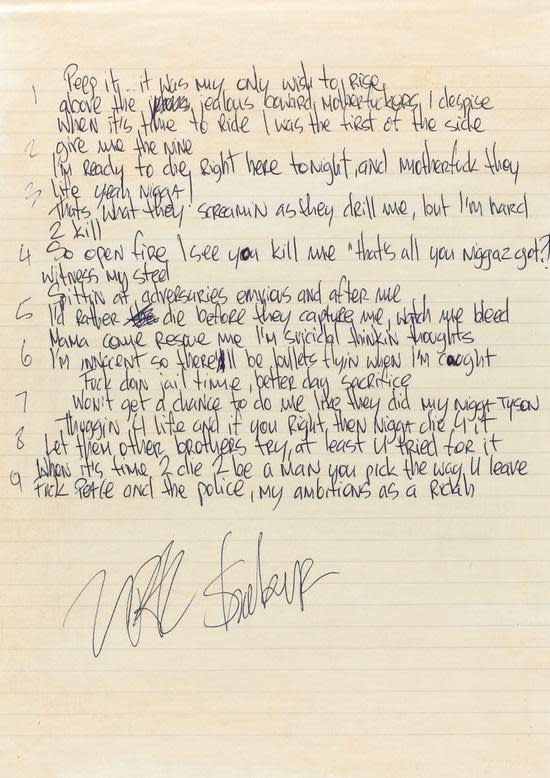 Peep it.. it was my only wish to rise
1 above the jealous coward Motherfuckers I despise
when it's time to Ride I was the first of the side
2 give me the nine
I'm Ready to die Right here tonight, and Motherfuck they
3 life yeah Nigga!
thats what they screamin as they drill me, but I'm hard
2 kill
4 So open fire I see you kill me "that's all you Niggaz got?
witness my steel
Spittin at adversaries envious and after me
5 I'd rather die before they capture me, watch me bleed
Mama come Rescue me I'm suicidal thinkin thoughts
6 I'm innocent so there'll be bullets flyin when I'm caught
Fuck doin jail time, better day sacrifice
7 Won't get a chance to do me like they did my Nigga TYSON
Thuggin 4 life and if you Right, then Nigga die 4 it
8 Let them other brothers try, at least U tried for it
When it's time 2 die 2 be a MAN you pick the way U leave
9 Fuck Peace and the police, my ambitions as a Ridah